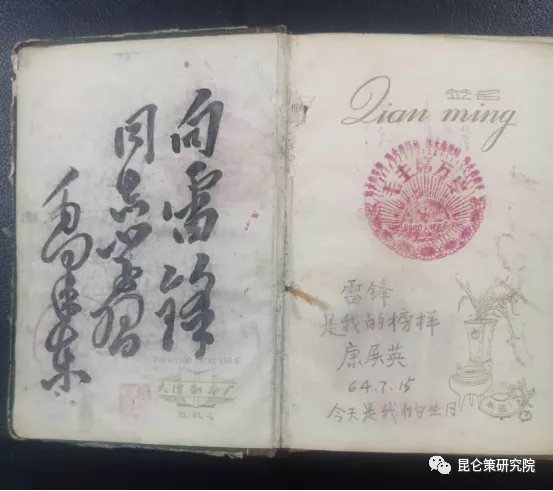 向雷锋
同志学习
毛泽东
签名
Qian ming
毛主席万岁
雷锋
是我的榜样
康展英
64.7.15
今天是我的生日
昆仑策研究院